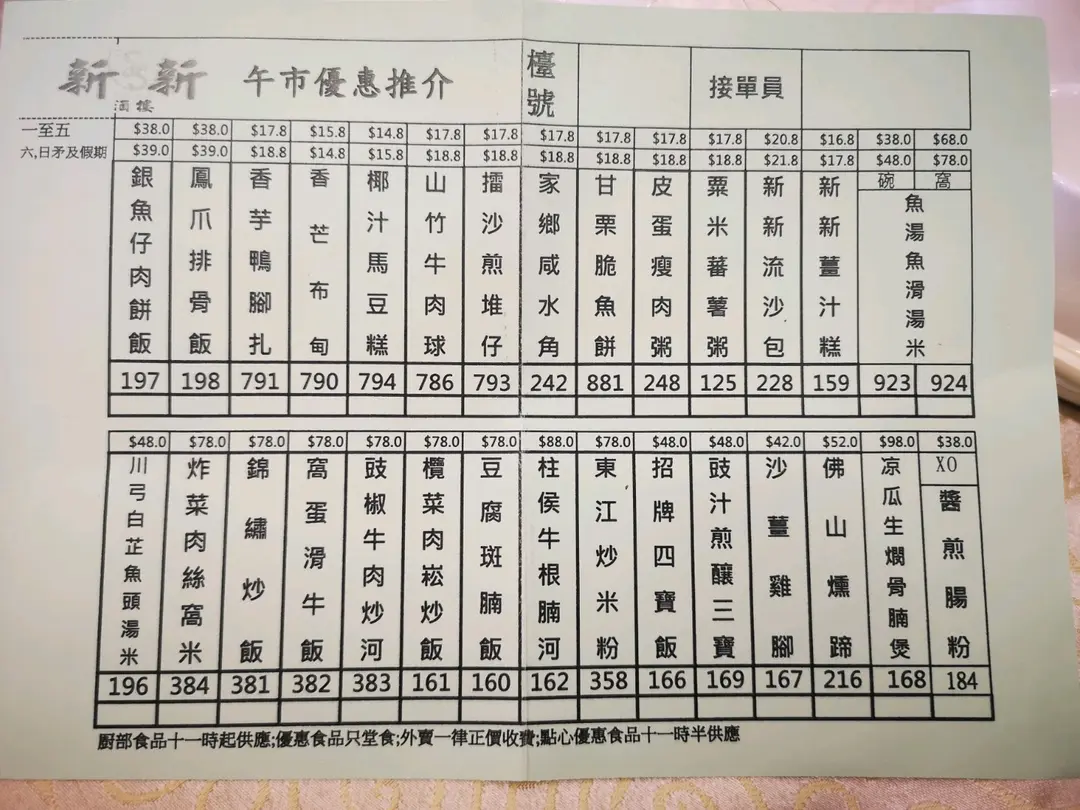 新新 午市優惠推介 檯號 接單員
酒樓
一至五 $38.0 $38.0 $17.8 $15.8 $14.8 $17.8 $17.8 $17.8 $17.8 $17.8 $17.8 $20.8 $16.8 $38.0 $68.0
六,日矛及假期 $39.0 $39.0 $18.8 $14.8 $15.8 $18.8 $18.8 $18.8 $18.8 $18.8 $18.8 $21.8 $17.8 $48.0 $78.0
銀魚仔肉餅飯
鳳爪排骨飯
香芋鴨腳扎
香芒布甸
椰汁馬豆糕
山竹牛肉球
擂沙煎堆仔
家鄉咸水角
甘栗脆魚餅
皮蛋瘦肉粥
粟米蕃薯粥
新新流沙包
新新薑汁糕
碗 窩
魚湯魚滑湯米
197 198 791 790 794 786 793 242 881 248 125 228 159 923 924
$48.0 $78.0 $78.0 $78.0 $78.0 $78.0 $78.0 $88.0 $78.0 $48.0 $48.0 $42.0 $52.0 $98.0 $38.0
川弓白芷魚頭湯米
炸菜肉絲窩米
錦繡炒飯
窩蛋滑牛飯
豉椒牛肉炒河
欖菜肉崧炒飯
豆腐斑腩飯
柱侯牛根腩河
東江炒米粉
招牌四寶飯
豉汁煎釀三寶
沙薑雞腳
佛山燻蹄
凉瓜生爛骨腩煲
XO醬煎腸粉
196 384 381 382 383 161 160 162 358 166 169 167 216 168 184
厨部食品十一時起供應;優惠食品只堂食;外賣一律正價收費;點心優惠食品十一時半供應